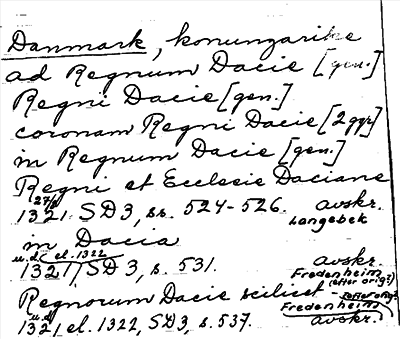 Danmark, konungarike
ad Regnum Dacie [gen.]
Regni Dacie [gen.]
coronam Regni Dacie [2 ggr]
in Regnum Dacie [gen.]
Regni et Ecclesie Daciane
1321 SD 3, ss. 524-526. avskr.
Langebek
in Dacia
u.d. el. 1322
1321, SD 3, s. 531. avskr.
Fredenheim
(efter orig?)
Regnorum Dacie scilicet - (efter orig?)
Fredenheim
u.d.
1321 el. 1322, SD 3, s. 537. avskr.